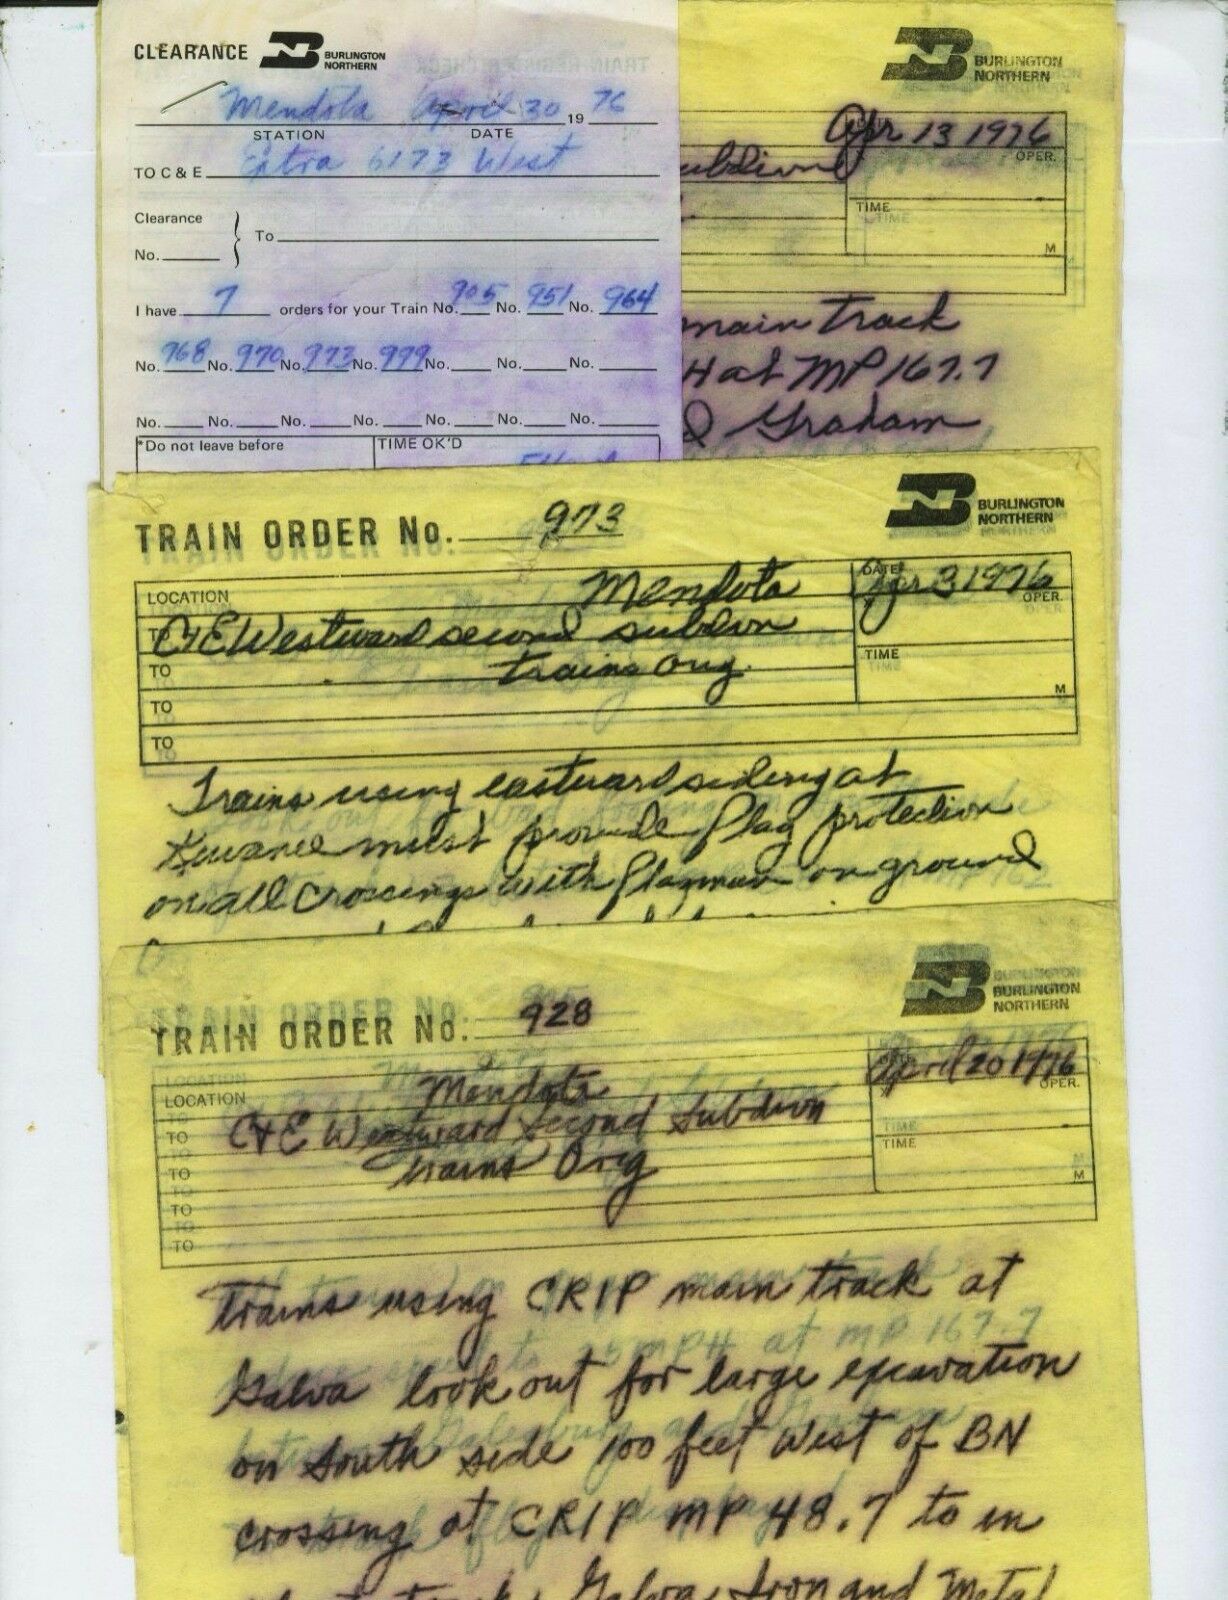 CLEARANCE BN BURLINGTON NORTHERN
Mendota April 30 19 76
STATION DATE
TO C & E Extra 6173 West
Clearance
No. To
I have 7 orders for your Train No. 905 No. 951 No. 964
No. 968 No. 970 No. 973 No. 979 No. No. No.
No. No. No. No. No. No. No.
*Do not leave before TIME OK'D
BN BURLINGTON NORTHERN
Apr 13 1976
OPER.
subdivn
TIME
M
main track
H at MP 167.7
Graham
TRAIN ORDER No. 973 BN BURLINGTON NORTHERN
LOCATION Mendota DATE Apr 3 1976
OPER.
TO C&E Westward second subdivn
TO trains Orig. TIME
TO M
TO
Trains using eastward siding at
Kewanee must provide flag protection
on all crossings with flagman on ground
TRAIN ORDER No. 928 BN BURLINGTON NORTHERN
LOCATION Mendota DATE April 20 1976
OPER.
TO C&E Westward Second Subdivn
TO trains Orig TIME
TO M
TO
Trains using CRIP main track at
Galva look out for large excavation
on South side 100 feet West of BN
crossing at CRIP MP 48.7 to in
Galva Iron and Metal